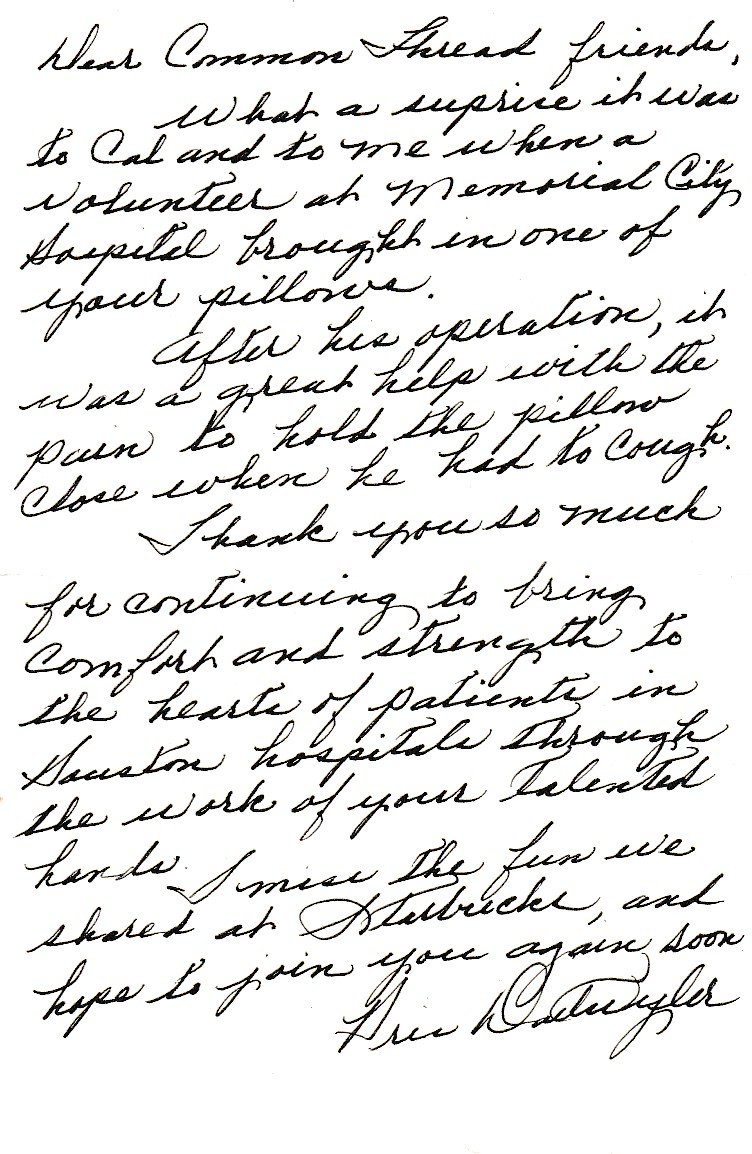 Dear Common Thread friends,
What a suprise it was
to Cal and to me when a
volunteer at Memorial City
Hospital brought in one of
your pillows.
After his operation, it
was a great help with the
pain to hold the pillow
close when he had to cough.
Thank you so much
for continuing to bring
comfort and strength to
the hearts of patients in
Houston hospitals through
the work of your talented
hands. I miss the fun we
shared at Starbucks, and
hope to join you again soon